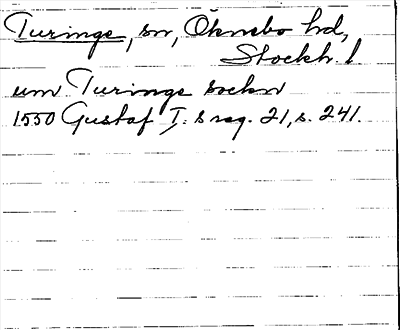 Turinge, sn, Öknebo hd,
Stockh. l
um Turinge sockn
1550 Gustaf I:s reg. 21, s. 241.